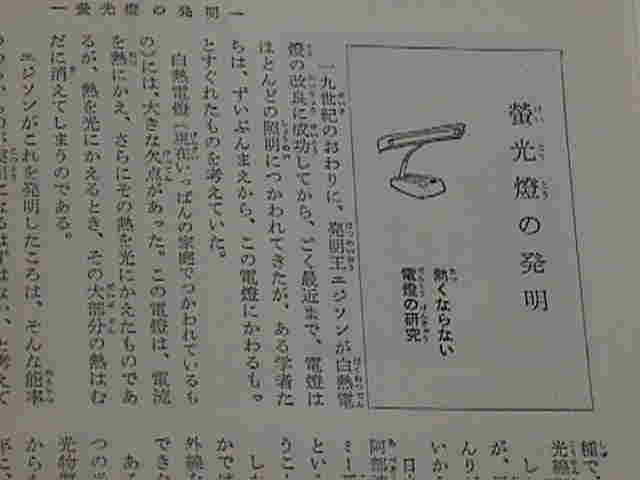 一螢光燈の発明一
螢光燈の発明
熱くならない
電燈の研究
一九世紀のおわりに、発明王エジソンが白熱電
燈の改良に成功してから、ごく最近まで、電燈は
ほとんどの照明につかわれてきたが、ある学者た
ちは、ずいぶんまえから、この電燈にかわるもっ
とすぐれたものを考えていた。
白熱電燈(現在いっぱんの家庭でつかわれているも
の)には、大きな欠点があった。この電燈は、電流
を熱にかえ、さらにその熱を光にかえたものであ
るが、熱を光にかえるとき、その大部分の熱はむ
だに消えてしまうのである。
エジソンがこれを発明したころは、そんな能率
になるはずはない、と考えて
種で、
光線
し
が、
んり
いか
日
阿部
ミー
とい
うこ
し
かで
外線
でき
ある
つの
光物
からも
年に